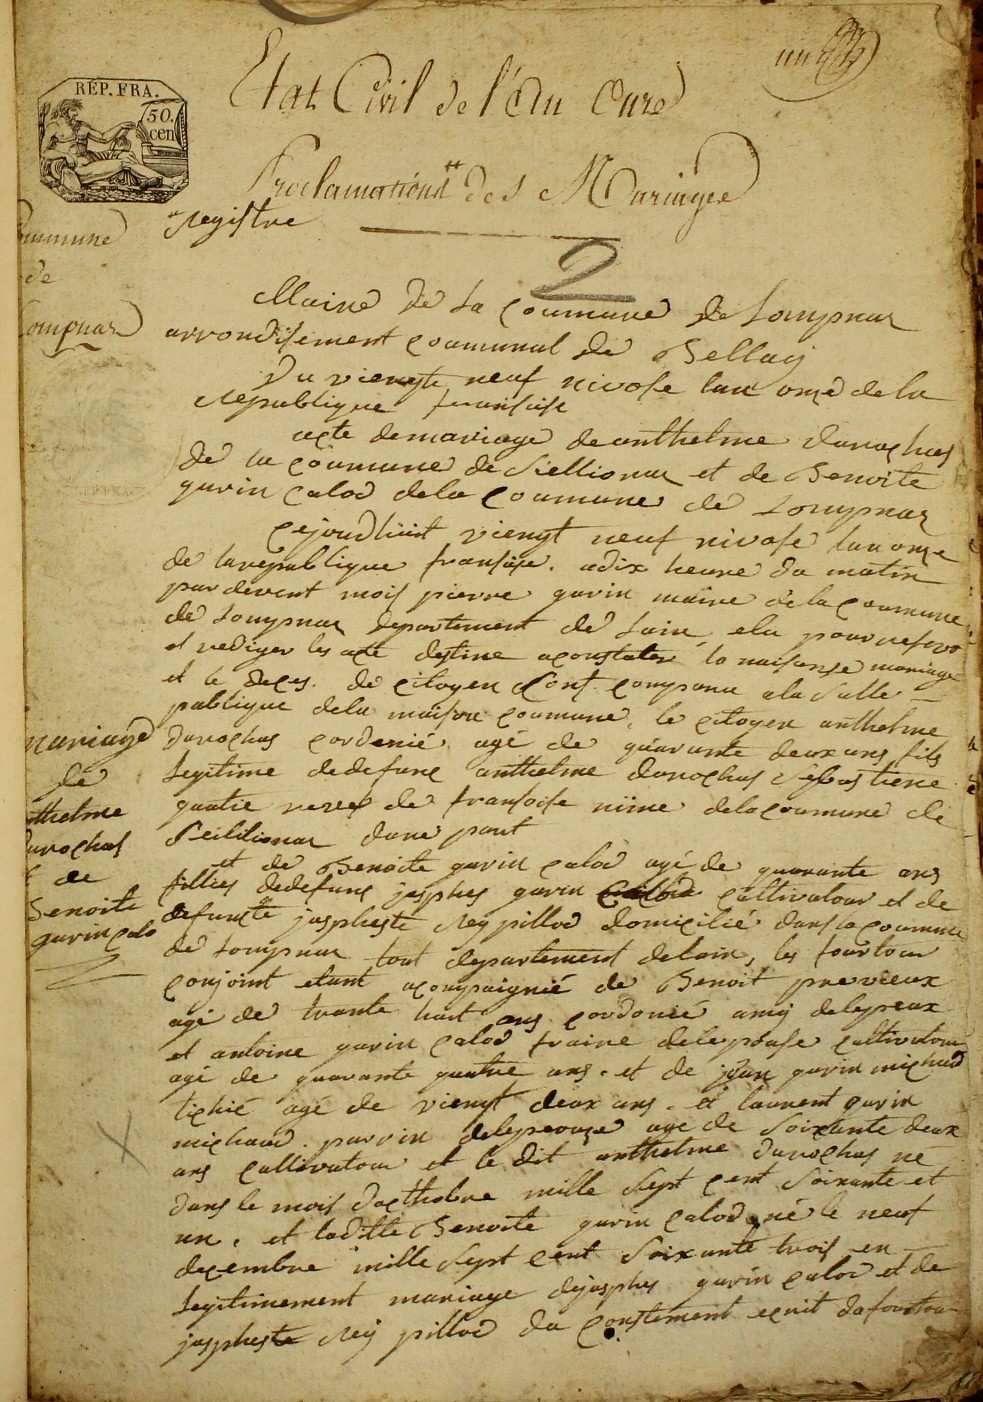 Etat Civil de l'an onze
REP. FRA.
50.
cen
Proclamations des Mariages
Registre
Commune
de
Lompnas
2
Maire de La Coumune de Lompnas
arrondisement coumunal de Bellay
Du viengte neuf nivose lan onze de la
Republique fransaise
acte demariage de anthelme Durochas
de la Coumune de Seillionas et de Benoite
gurin calod dela Coumune de Lompnas
cejourdhuit viengt neuf nivose lan onze
de la republique fransaise. adix heure du matin
par devent mois pierre gurin maire de la coumune
de Lompnas departement de Lain, elu pour
et rediger les acte destine a constater la naisense mariage
et le deces. de citoyen sont comparu a la Salle
publique dela maison coumune, le citoyen anthelme
Durochas cordonié agé de quarante deux ans fils
Legitime dedefunc anthelme durochas Sebastiene
de fransoise dela coumune de
Seillionas dune part
et de Benoite gurin calod agé de quarante ans
fillies dedefunc josphes gurin calod cultivatour et de
defuncte jospheste Rey pillod domicilié dans la coumune
de Lompnas tout departement delain, les
conjoint etant acompaignié de Benoit previeux
agé de trante huit ans cordonié amy delepeux
et antoine gurin calod fraire delepouse cultivatour
agé de quarante quatre ans. et de jean gurin michud
agé de viengt deux ans. et laurent gurin
michaud parvin delepeouze agé de Soixente deux
ans cultivatour et le dit anthelme durochas né
dans le mois docthobre mille Sept cent Soixante et
un. et laditte Benoite gurin calod né le neuf
decembre mille Sept cent Soixante trois en
Legitimement mariage dejosphes gurin calod et de
jospheste Rey pillod du constement ecrit
mariage
de
anthelme
durochas
et de
Benoite
gurin calo